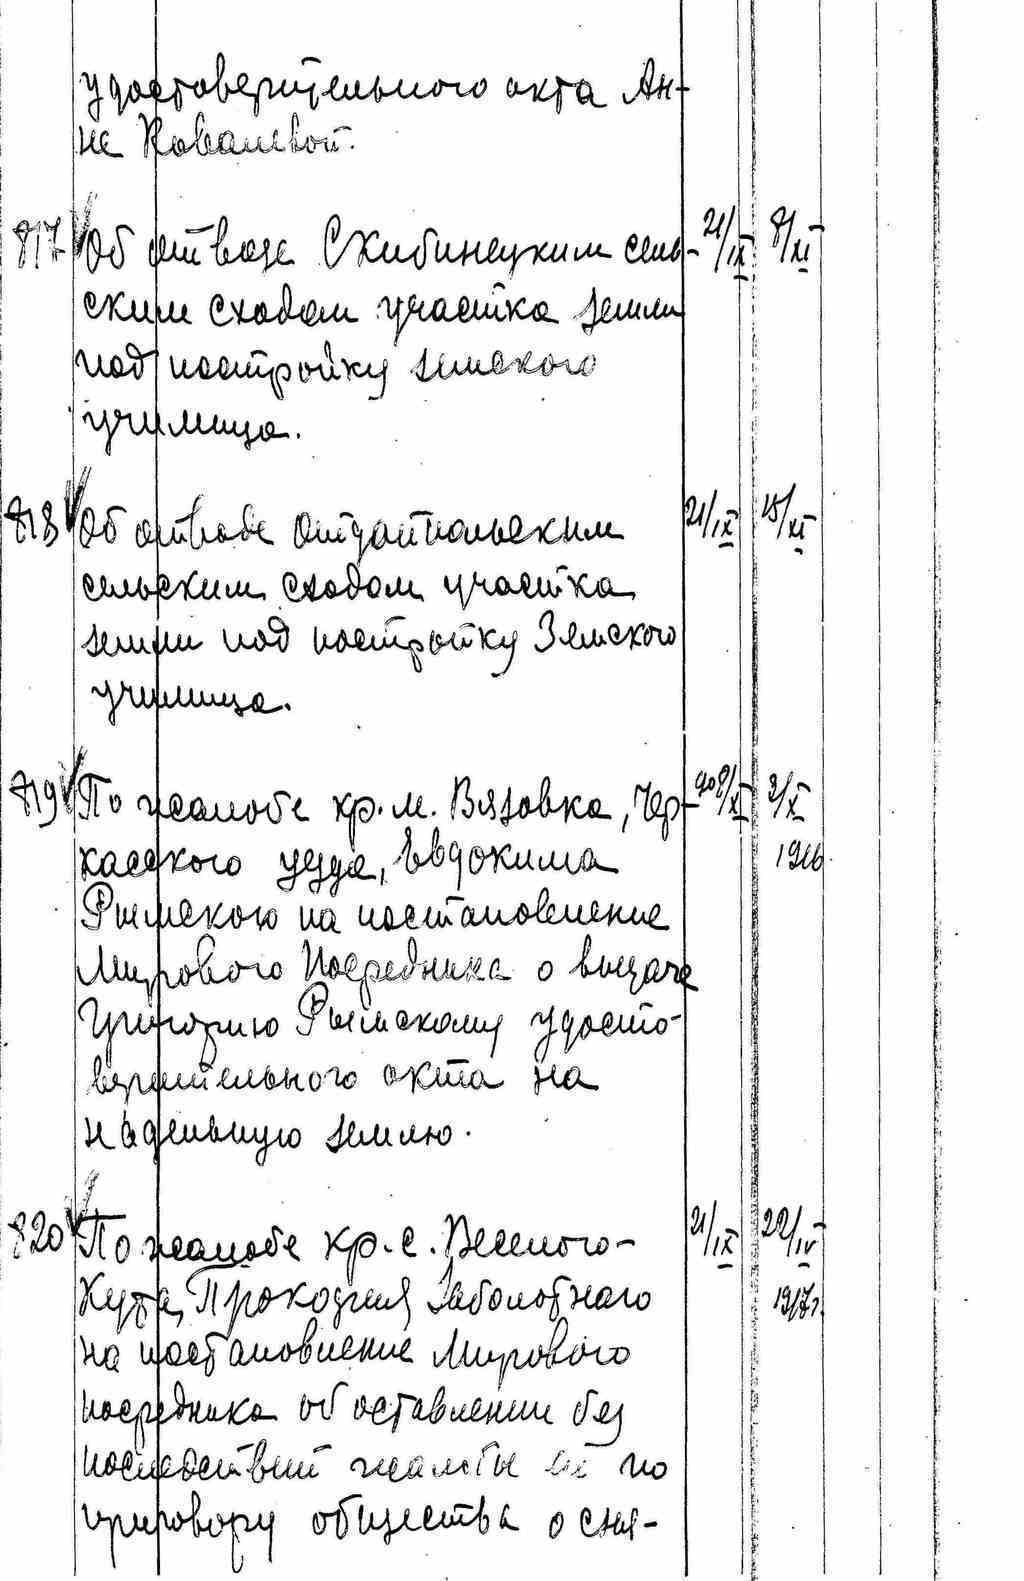 удостоверительного акта Ан-
не Ковалевой.
817 Об отводе Скибинецким сель- 21/IX 8/XI
ским сходом участка земли
под постройку земского
училища.
818 Об отводе сельским 21/IX 15/XI
сельским сходом участка
земли под постройку Земского
училища.
819 По жалобе кр. м. Вязовка, Чер-
касского уезда, Евдокима 1916
Рымского на постановление
Мирового Посредника о выдаче
Григорию Рымскому удосто-
верительного акта на
надельную землю.
820 По жалобе кр. с. Веселого- 21/IX 22/IV
Кута, Заболотного 1917г.
на постановление Мирового
посредника об оставлении без
последствий жалобы по
приговору общества о сня-